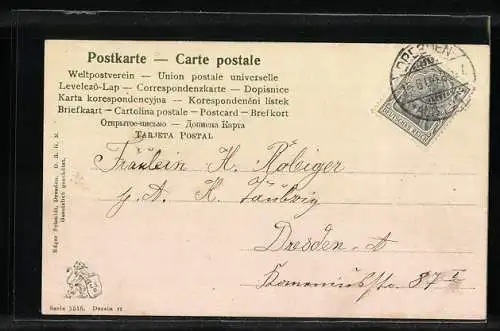 Postkarte — Carte postale
Weltpostverein — Union postale universelle
Levelező-Lap — Correspondenzkarte — Dopisnice
Karta korespondencyjna — Korespondenční lístek
Briefkaart — Cartolina postale — Postcard — Brefkort
Открытое письмо — Дописна Карта
TARJETA POSTAL
DRESDEN
DEUTSCHES REICH
Fräulein H. Röbiger
p. A. K.
Dresden-A
87 I
Edgar Schmidt, Dresden. D. R. G. M.
Gesetzlich geschützt.
Serie 1516. Dessin